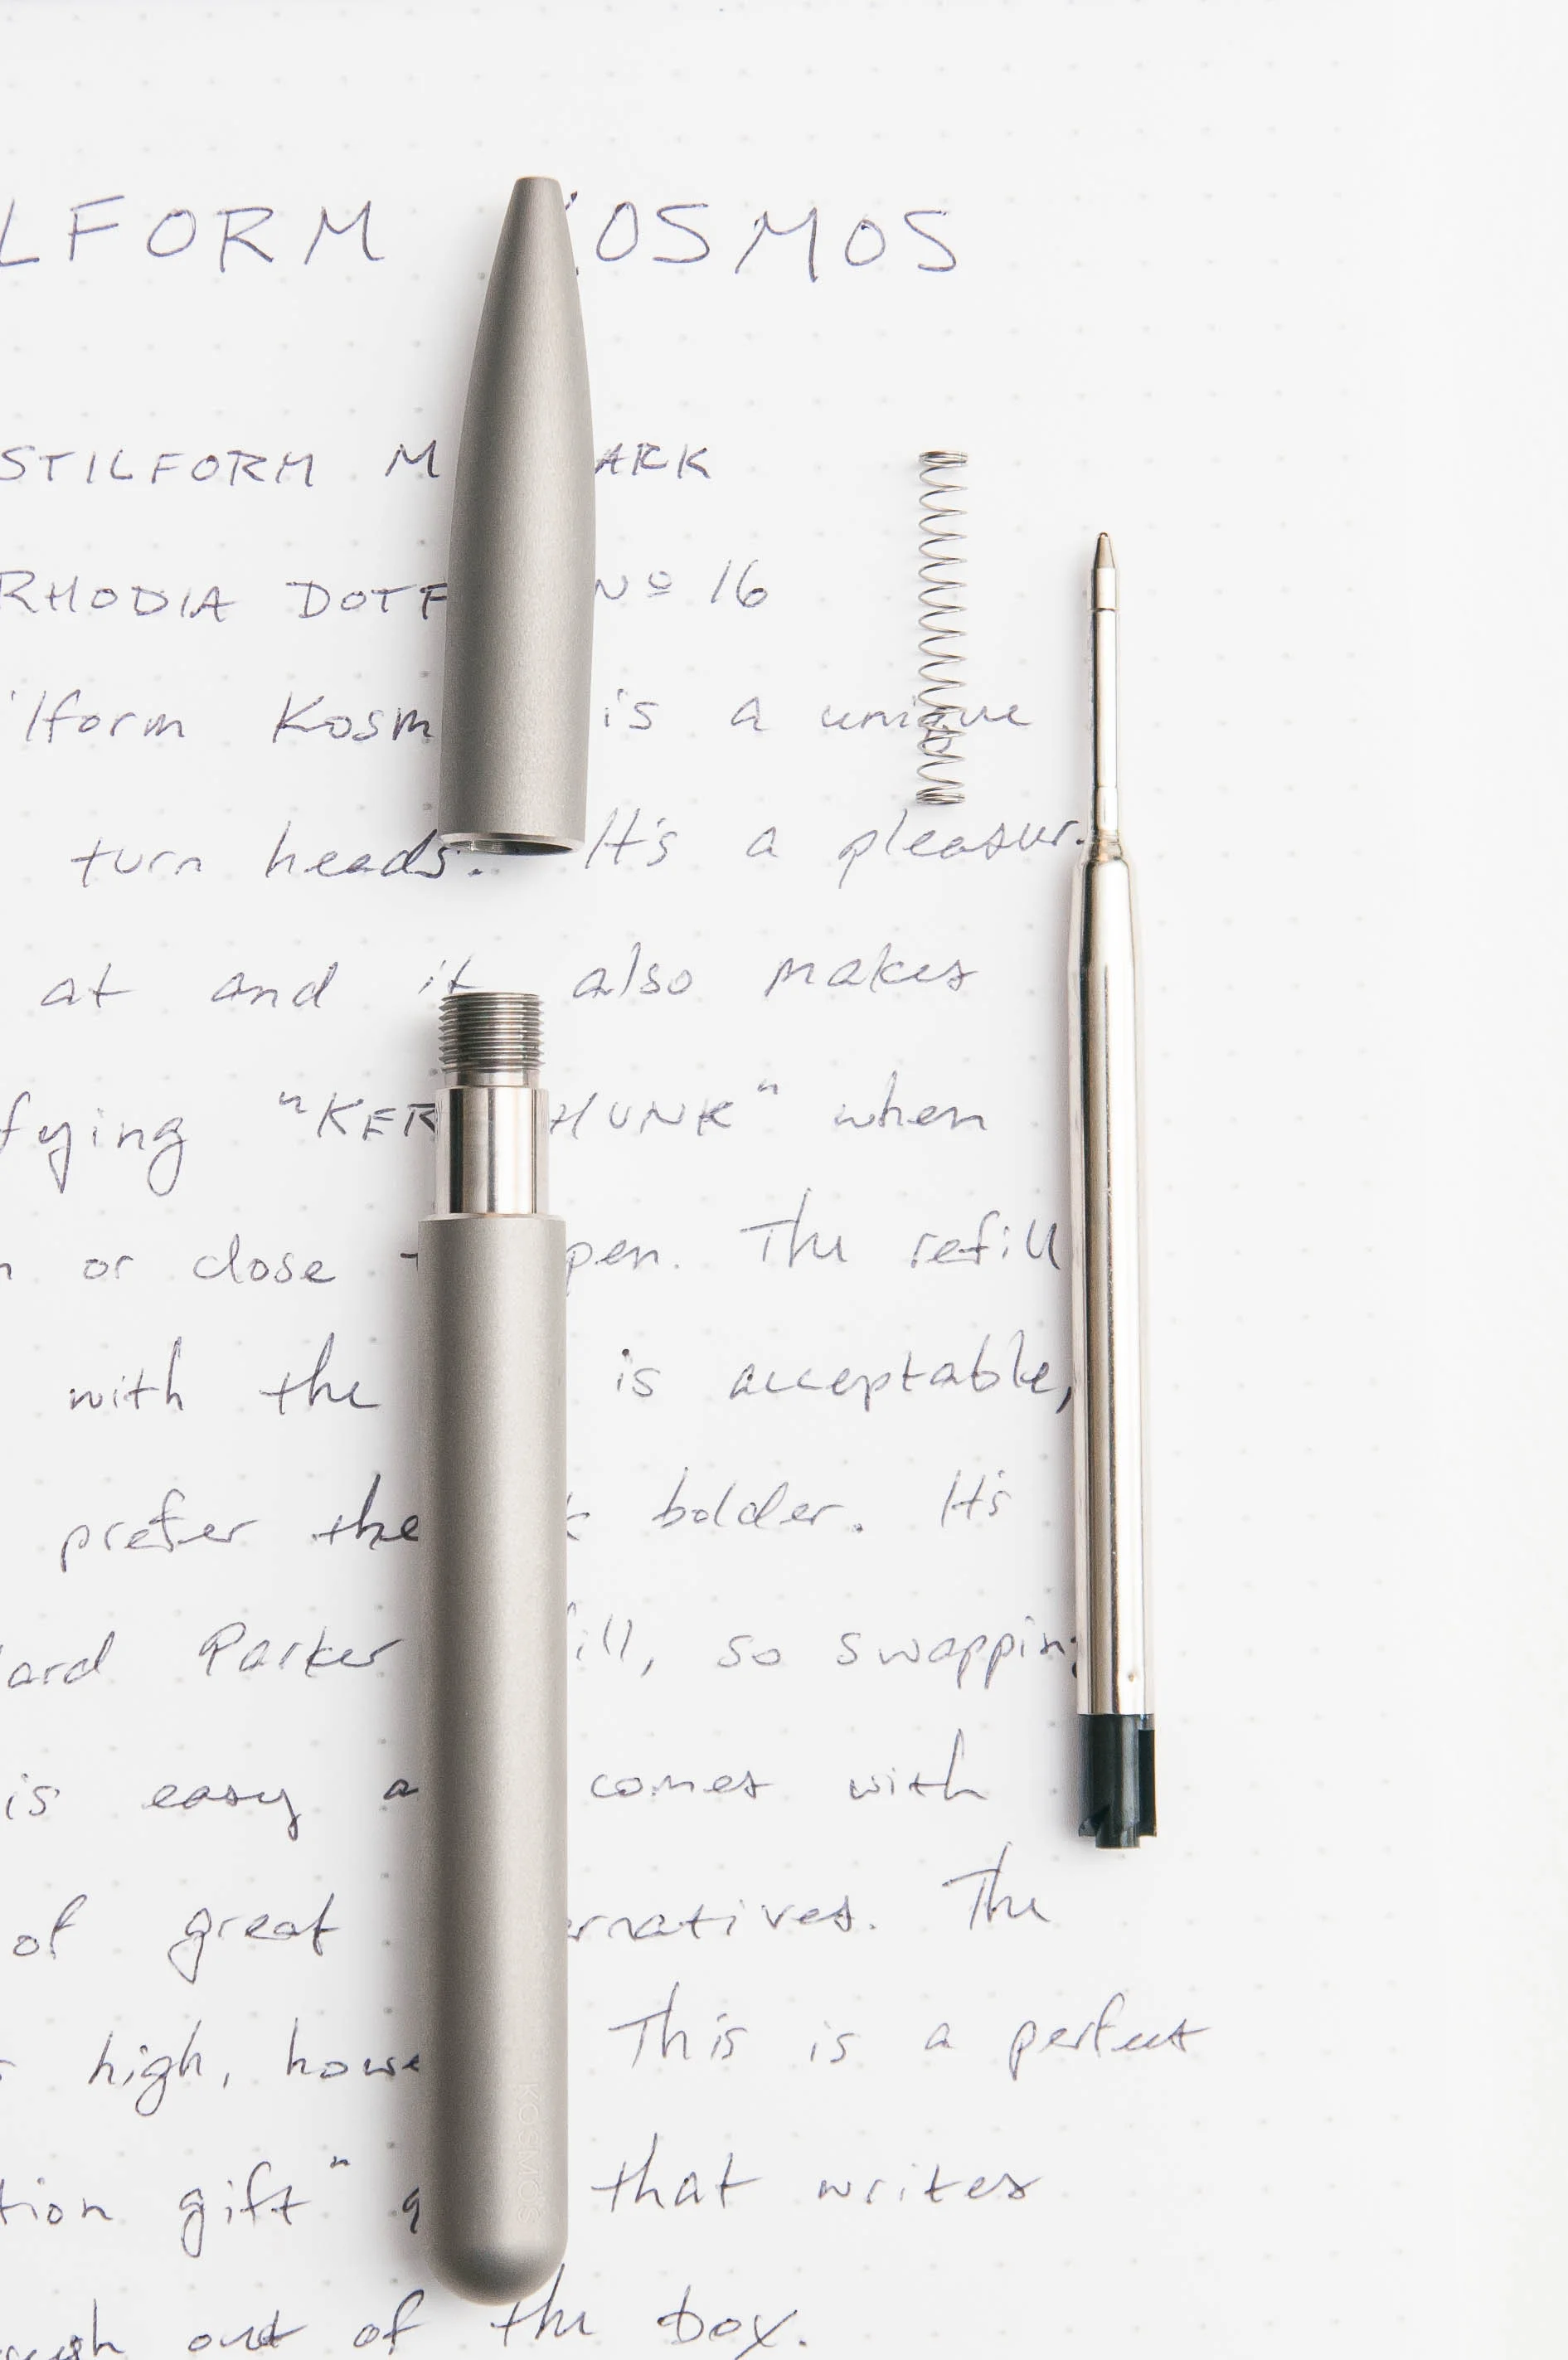 LFORM KOSMOS
STILFORM M ARK
RHODIA DOTP Nº 16
ilform Kosm is a unique
turn heads. It's a pleasur
at and it also makes
fying "KER HUNK" when
or close pen. The refill
with the is acceptable,
prefer the bolder. It's
ard Parker ill, so swapping
is easy a comes with
of great ernatives. The
high, howe This is a perfect
tion gift" that writes
out of the box.
KOSMOS